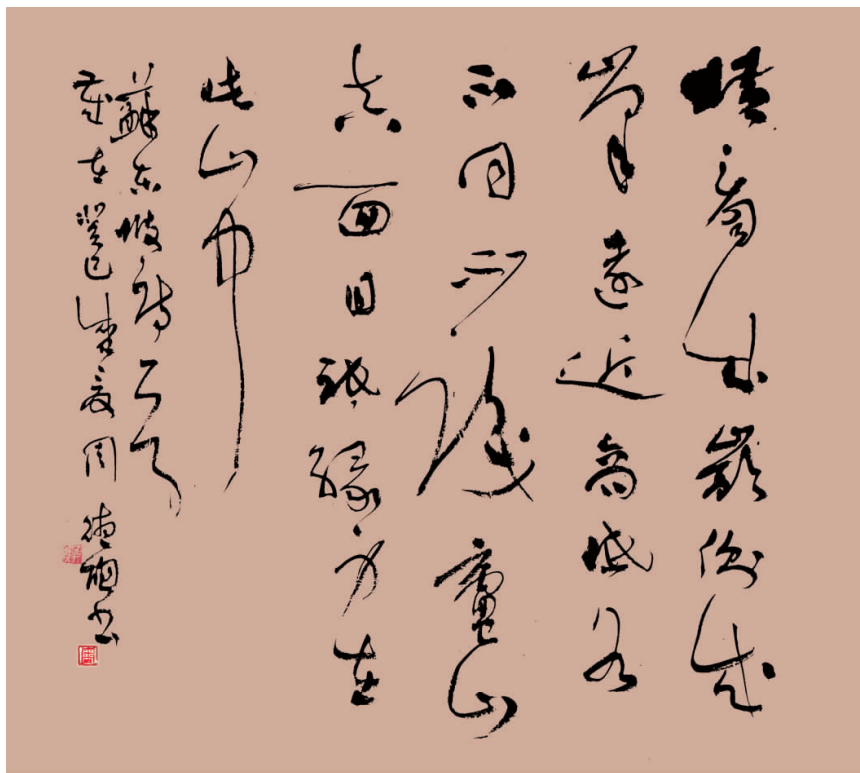 橫看成嶺側成
峯遠近高低各
不同不識廬山
真面目祇緣身在
此山中
蘇東坡詩
歲在癸巳盛夏周德聰書